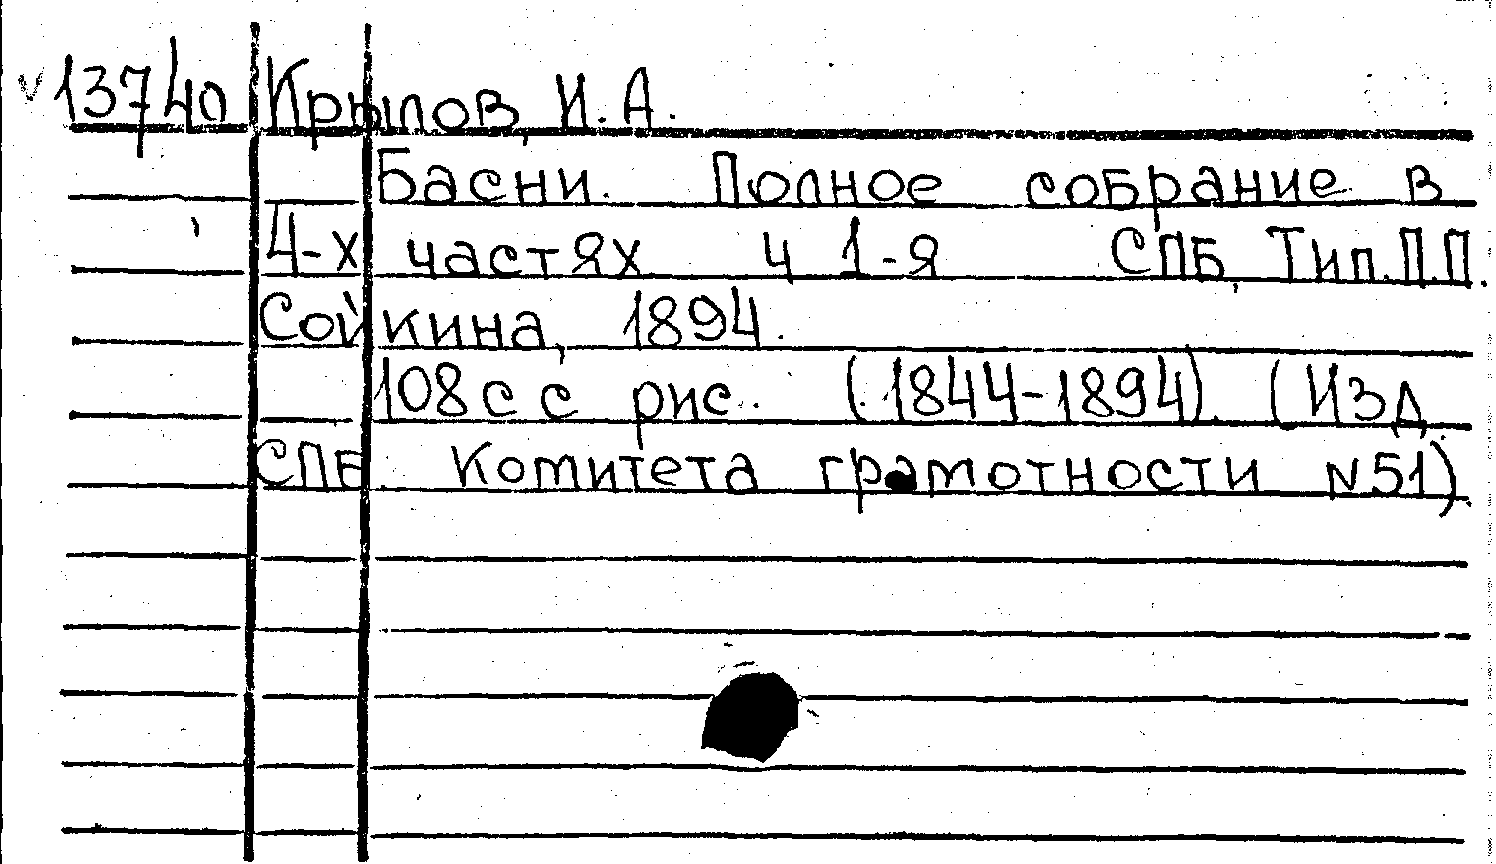 137/40 Крылов, И. А.
Басни. Полное собрание в
4-х частях ч 1-я СПБ, Тип. П.П.
Сойкина, 1894.
108 с с рис. (1844-1894). (Изд.
СПБ. Комитета грамотности N51).